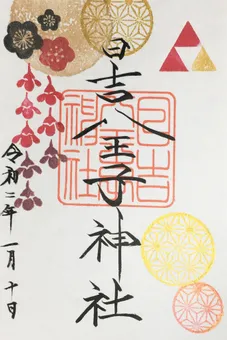 日吉八王子神社
日吉
神社
令和二年一月十日